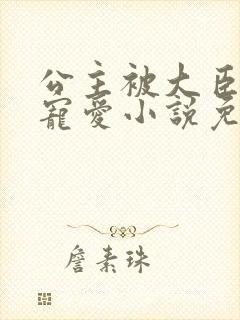 公主被大臣
寵愛小說免
詹素珠